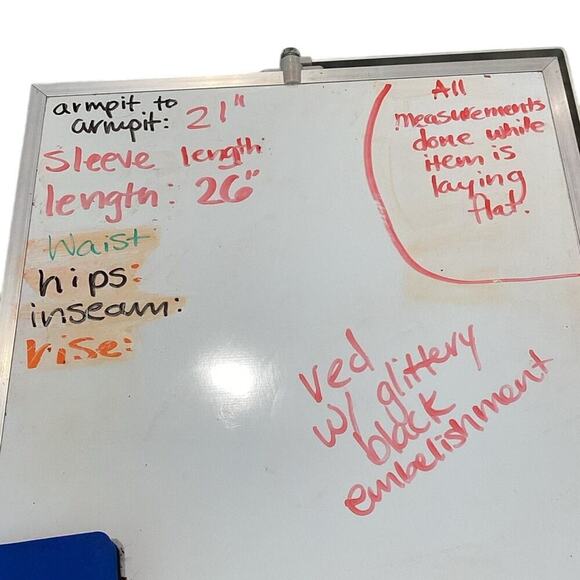 armpit to
armpit: 21"
Sleeve length
length: 26"
Waist
hips:
inseam:
rise:
All
measurements
done while
item is
laying
flat.
red
w/ glittery
black
embelishment